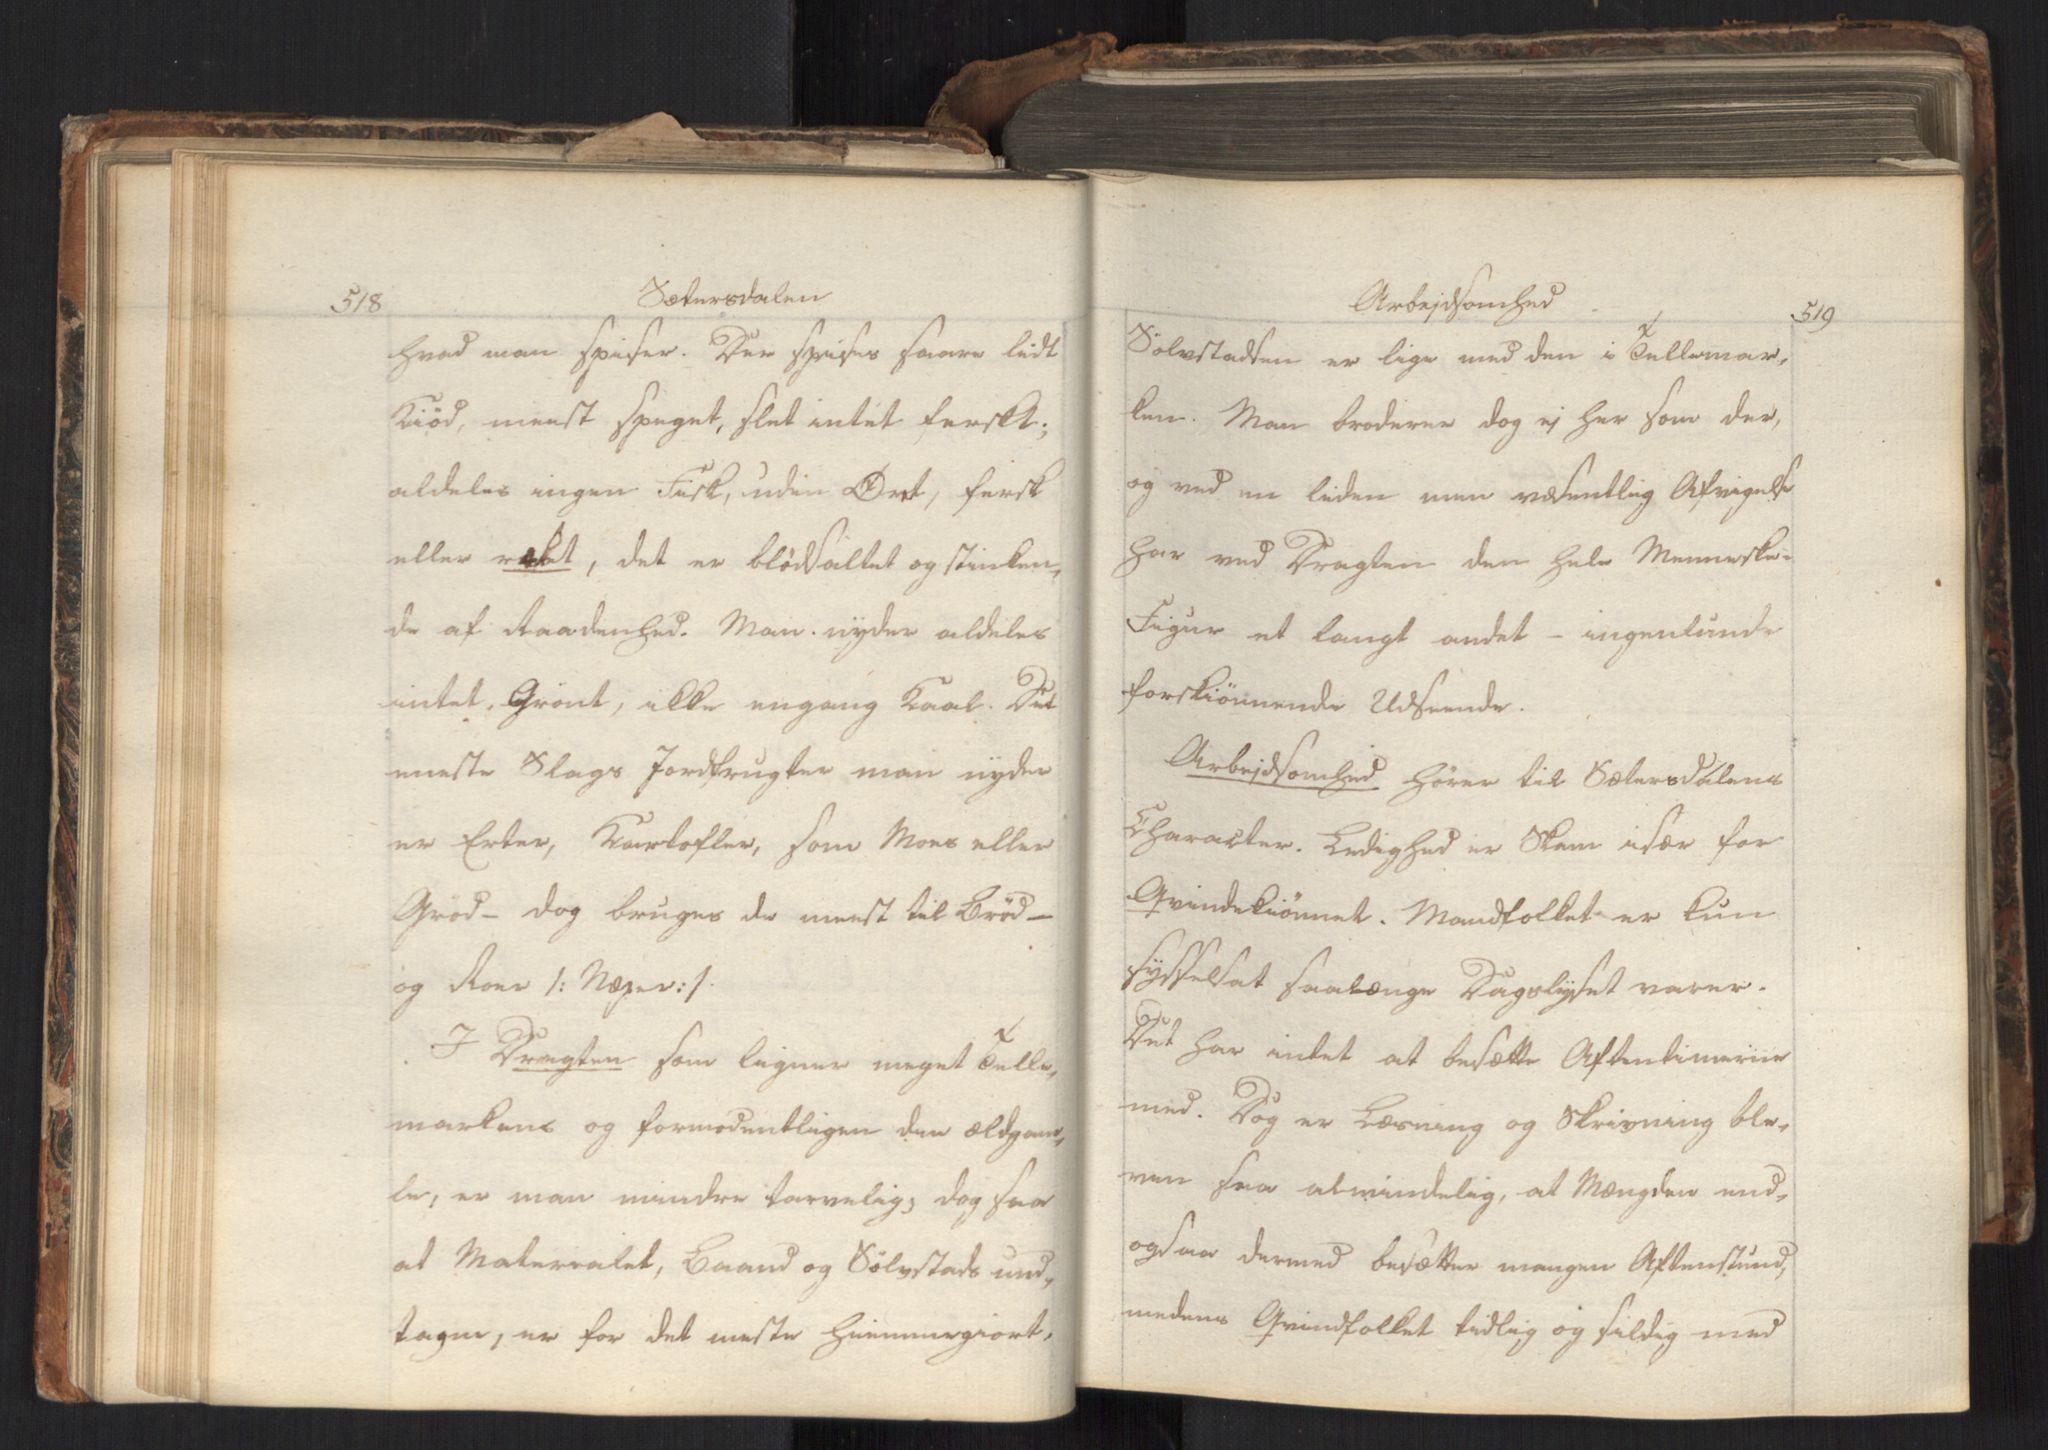 518
Sætersdalen
hvad man spiser. Der spises saare lidt
Kiöd, meest speget, slet intet ferskt;
aldeles ingen Fisk, uden Øret, fersk
eller raket, det er blödsaltet og stinken,
de af Raadenhed. Man nyder aldeles
intet Grönt, ikke engang Kaal. Det
meeste Slags Jordfrugter man nyder
er Erter, Kartofler, som Moes eller
Gröd – dog bruges de meest til Bröd –
og Roer /: Næper :/.
I Dragten som ligner meget Telle,
markens og formodentligen den ældgam,
le, er man mindre tarvelig; dog saa
at Materialet, Baand og Sölvstads und,
tagne, er for det meste hiemmegiort.
Arbejdsomhed
519
Sölvstadsen er lige med den i Tellemar,
ken. Man broderer dog ej her som der,
og ved en liden men væsentlig Afvigelse
har ved Dragten den hele Menneske-
Figur et langt andet – ingenlunde
forskiönnende Udseende.
Arbejdsomhed hörer til Sætersdalens
Character. Ledighed er Skam især for
Qvindekiönnet. Mandfolket er kun
sysselsat saalænge Dagslyset varer.
Det har intet at besætte Aftentimerne
med. Dog er Læsning og Skrivning ble,
ven saa almindelig, at Mængden end,
ogsaa dermed besætter mangen Aftenstund,
medens Qvindfolket tidlig og sildig med